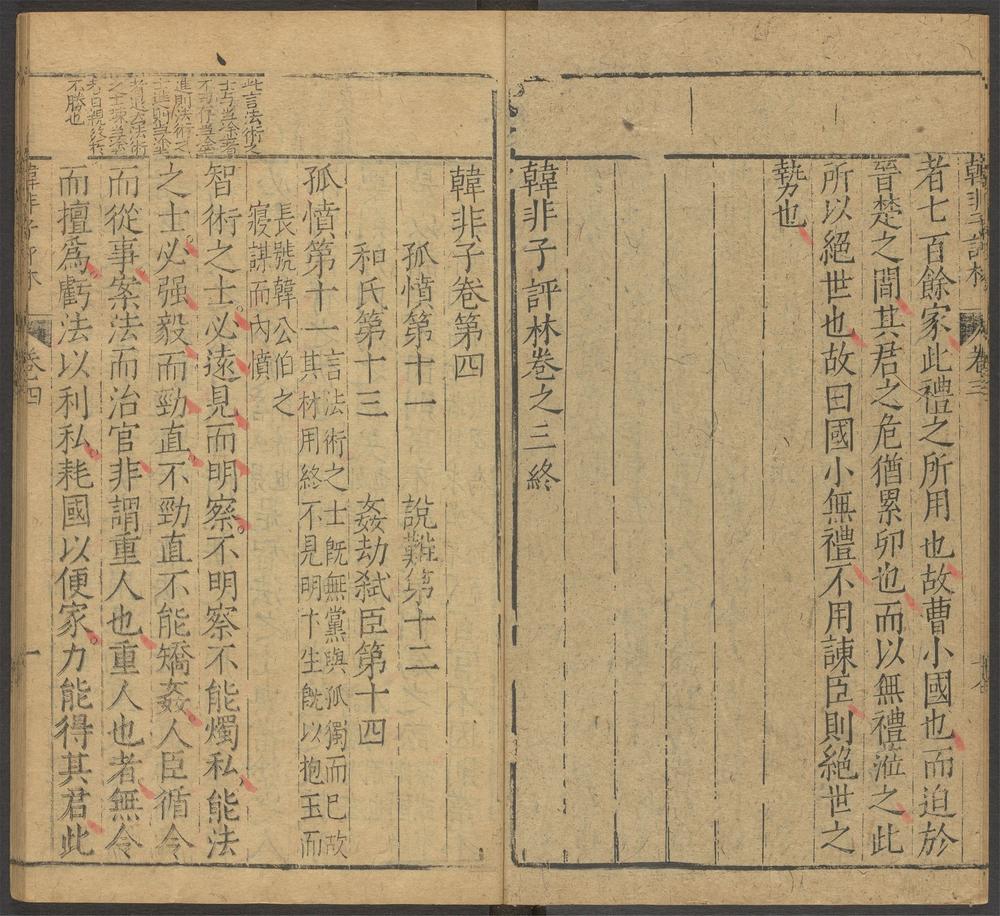 韓非子評林
卷三
者七百餘家此禮之所用也故曹小國也而迫於
晉楚之間其君之危猶累卵也而以無禮蒞之此
所以絕世也故曰國小無禮不用諫臣則絕世之
勢也
韓非子評林卷之三終
韓非子卷第四
孤憤第十一
說難第十二
和氏第十三
姦劫弑臣第十四
孤憤第十一
言法術之士既無黨與孤獨而已故
其材用終不見明卞生既以抱玉而
長號韓公伯之
寢謀而內憤
此言法術之
士与當塗者
不可存當塗
進則法術之
士退則當塗
智術之士必遠見而明察不明察不能燭私能法
之士必强毅而勁直不勁直不能矯姦人臣循令
而從事案法而治官非謂重人也重人也者無令
而擅爲虧法以利私耗國以便家力能得其君此
不勝也
韓非子評林
卷四
一